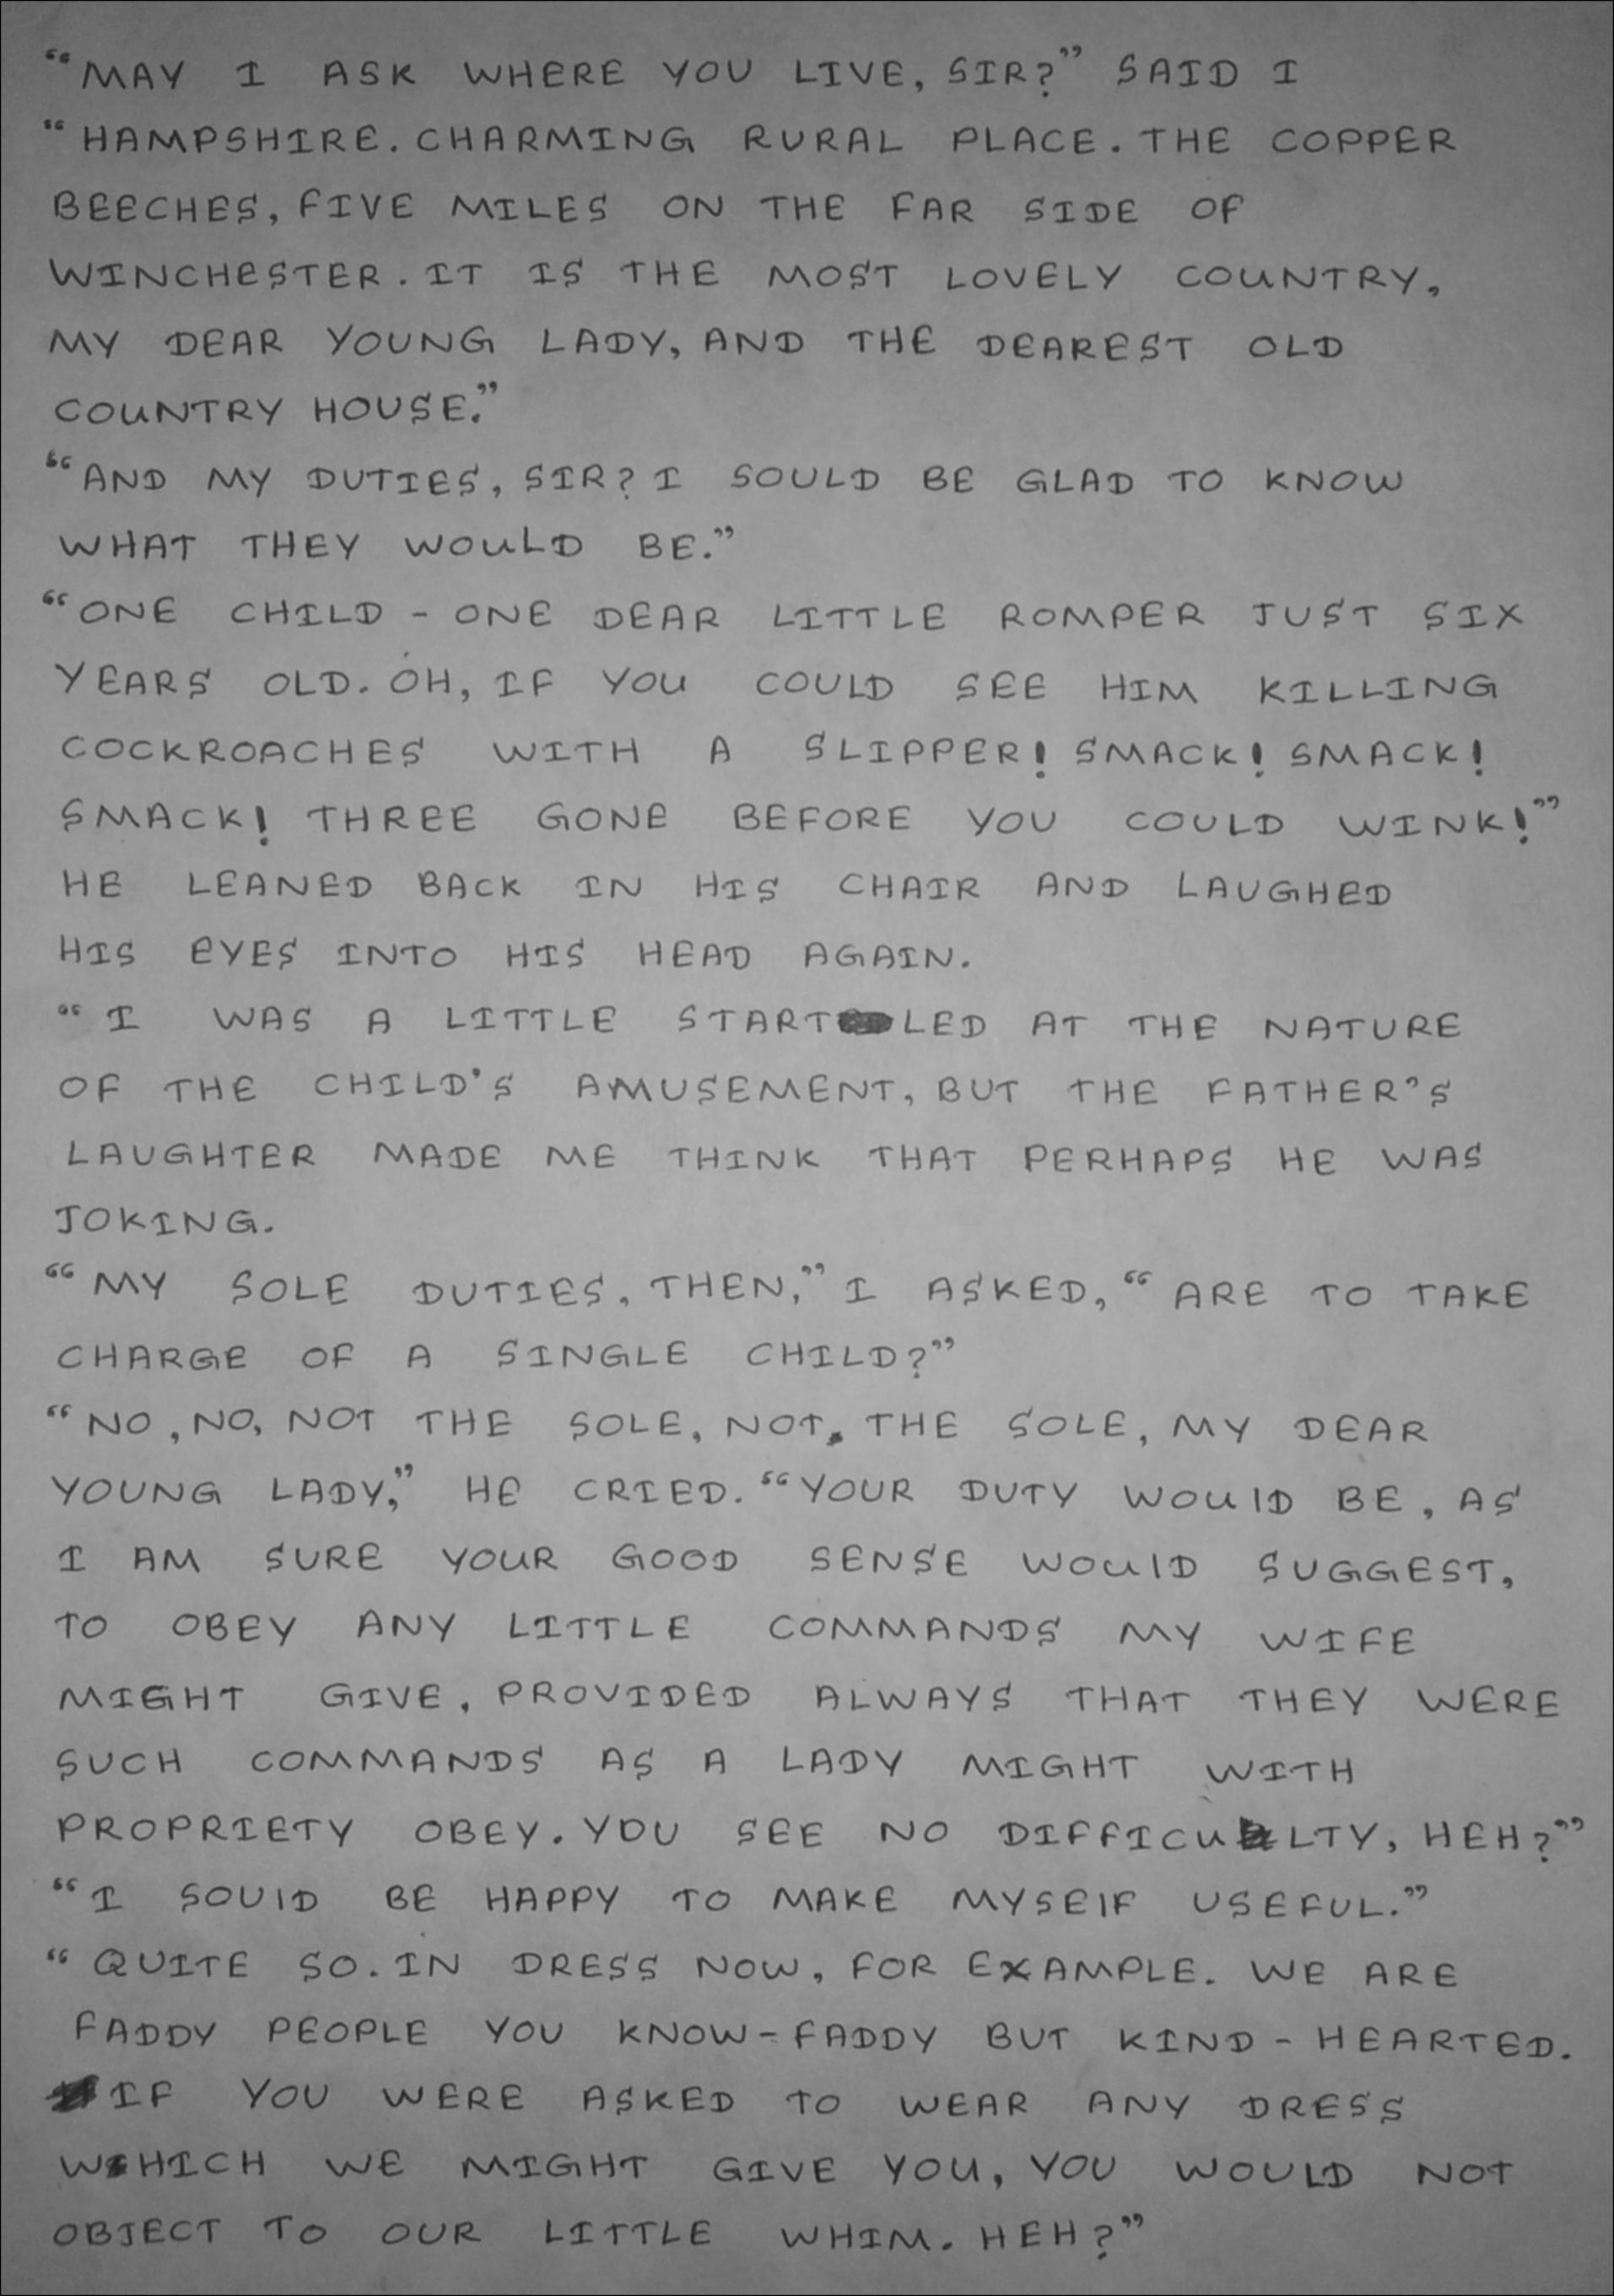 “MAY I ASK WHERE YOU LIVE, SIR?” SAID I
“HAMPSHIRE. CHARMING RURAL PLACE. THE COPPER
BEECHES, FIVE MILES ON THE FAR SIDE OF
WINCHESTER. IT IS THE MOST LOVELY COUNTRY,
MY DEAR YOUNG LADY, AND THE DEAREST OLD
COUNTRY HOUSE.”
“AND MY DUTIES, SIR? I SOULD BE GLAD TO KNOW
WHAT THEY WOULD BE.”
“ONE CHILD - ONE DEAR LITTLE ROMPER JUST SIX
YEARS OLD. OH, IF YOU COULD SEE HIM KILLING
COCKROACHES WITH A SLIPPER! SMACK! SMACK!
SMACK! THREE GONE BEFORE YOU COULD WINK!”
HE LEANED BACK IN HIS CHAIR AND LAUGHED
HIS EYES INTO HIS HEAD AGAIN.
“I WAS A LITTLE STARTLED AT THE NATURE
OF THE CHILD’S AMUSEMENT, BUT THE FATHER’S
LAUGHTER MADE ME THINK THAT PERHAPS HE WAS
JOKING.
“MY SOLE DUTIES, THEN,” I ASKED, “ARE TO TAKE
CHARGE OF A SINGLE CHILD?”
“NO, NO, NOT THE SOLE, NOT, THE SOLE, MY DEAR
YOUNG LADY,” HE CRIED. “YOUR DUTY WOUID BE, AS
I AM SURE YOUR GOOD SENSE WOUID SUGGEST,
TO OBEY ANY LITTLE COMMANDS MY WIFE
MIGHT GIVE, PROVIDED ALWAYS THAT THEY WERE
SUCH COMMANDS AS A LADY MIGHT WITH
PROPRIETY OBEY. YOU SEE NO DIFFICULTY, HEH?”
“I SOUID BE HAPPY TO MAKE MYSEIF USEFUL.”
“QUITE SO. IN DRESS NOW, FOR EXAMPLE. WE ARE
FADDY PEOPLE YOU KNOW - FADDY BUT KIND - HEARTED.
IF YOU WERE ASKED TO WEAR ANY DRESS
WHICH WE MIGHT GIVE YOU, YOU WOULD NOT
OBJECT TO OUR LITTLE WHIM. HEH?”